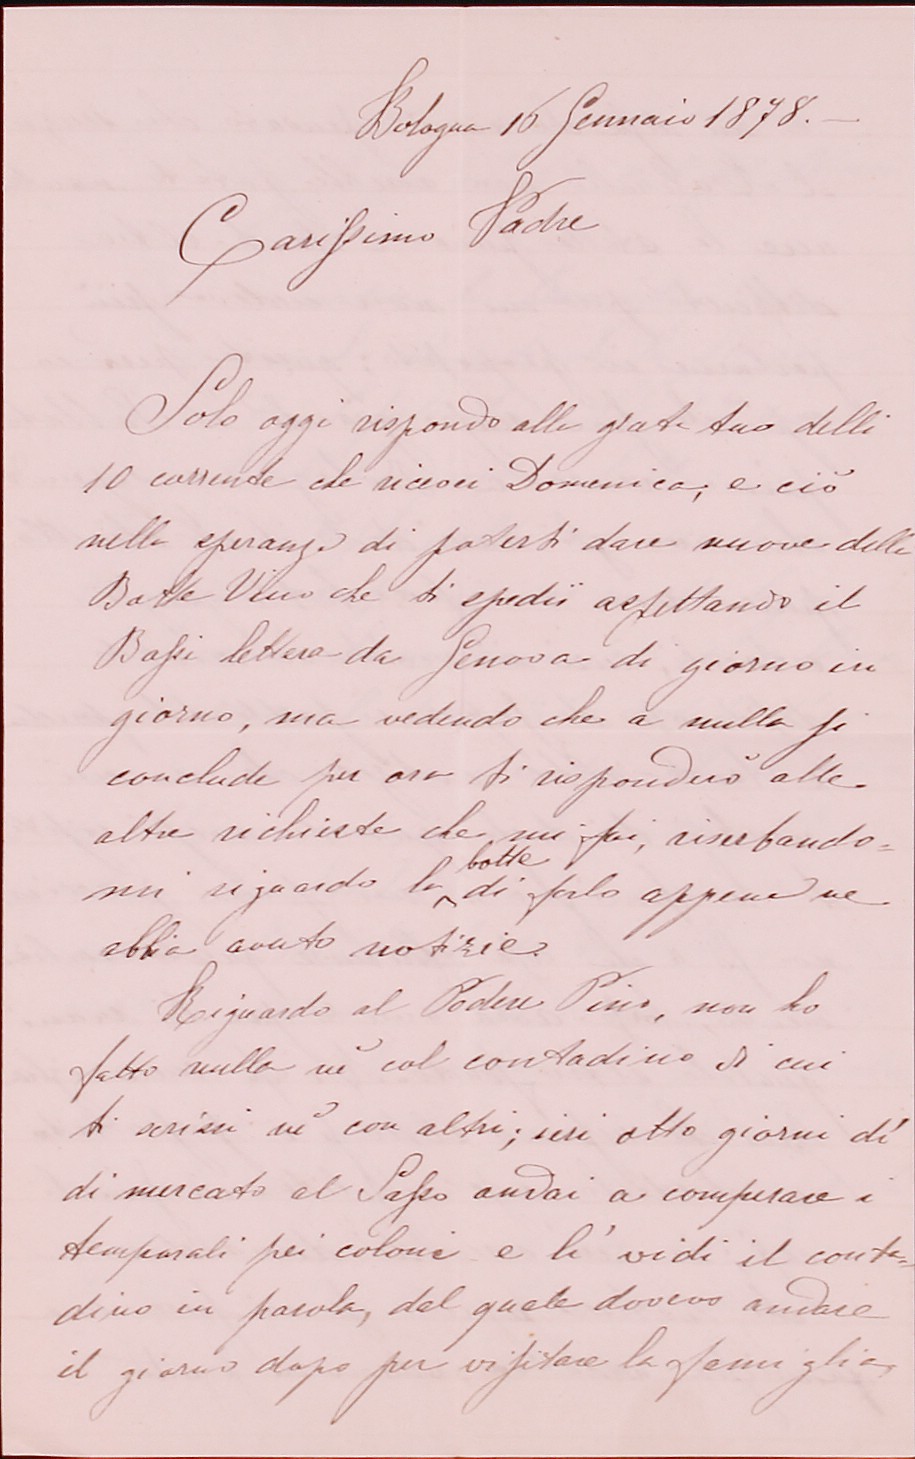 Bologna 16 Gennaio 1878. —
Carissimo Padre
Solo oggi rispondo alla grata tua delli
10 corrente che ricevei Domenica, e ciò
nella speranza di poterti dare nuove della
Botte Vino che ti spedii aspettando il
Bassi lettera da Genova di giorno in
giorno, ma vedendo che a nulla si
conclude per ora ti risponderò alle
altre richieste che mi fai, riserbando=
mi riguardo la botte di farlo appena ne
abbia avuto notizie.
Riguardo al Podere Pino, non ho
fatto nulla nè col contadino di cui
ti scrissi nè con altri; ieri otto giorni dì
di mercato al Sasso andai a comperare i
temporali pei coloni e lì vidi il conta=
dino in parola, dal quale dovevo andare
il giorno dopo per visitare la famiglia,